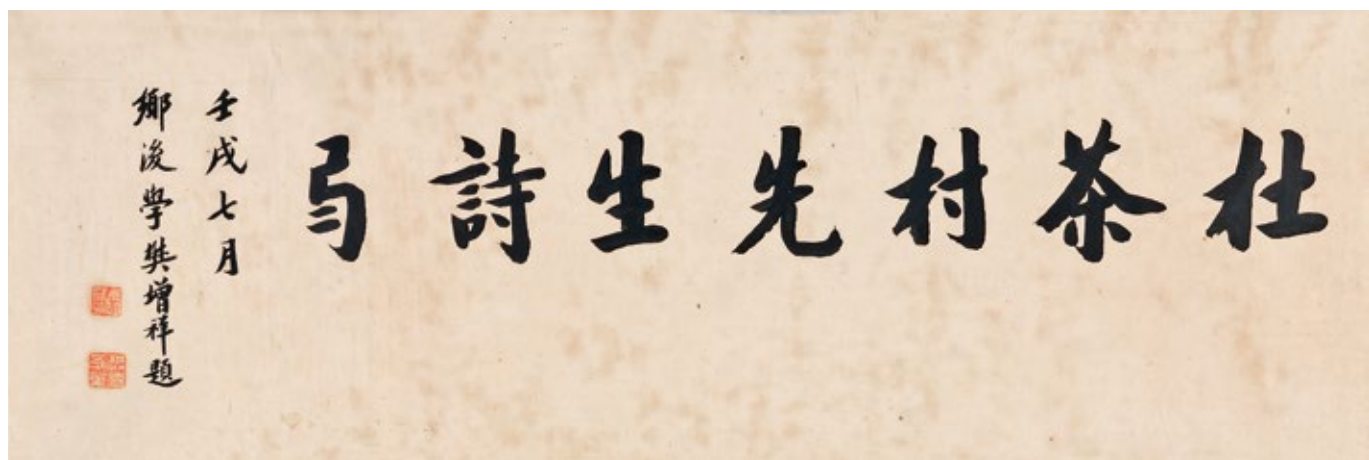 杜茶村先生詩弓
壬戌七月
鄉後學樊增祥題